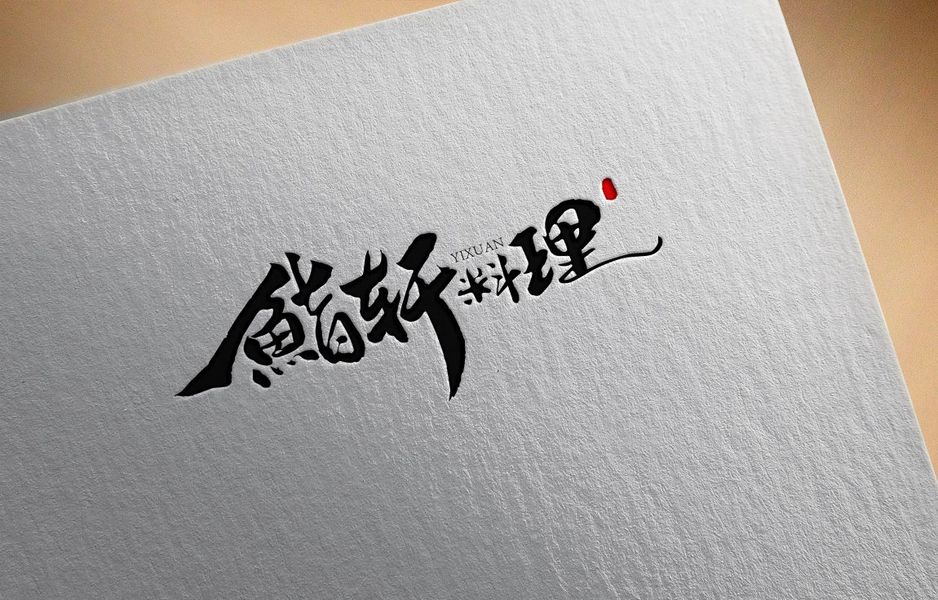 鮨轩料理
YIXUAN